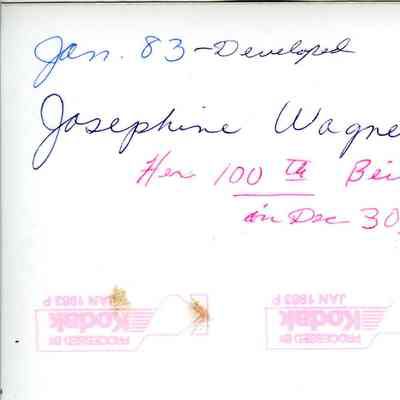 Jan. 83 - Developed
Josephine Wagne
Her 100th Bei
in Dec 30,
PROCESSED BY
Kodak
JAN 1983 P
PROCESSED BY
Kodak
JAN 1983 P